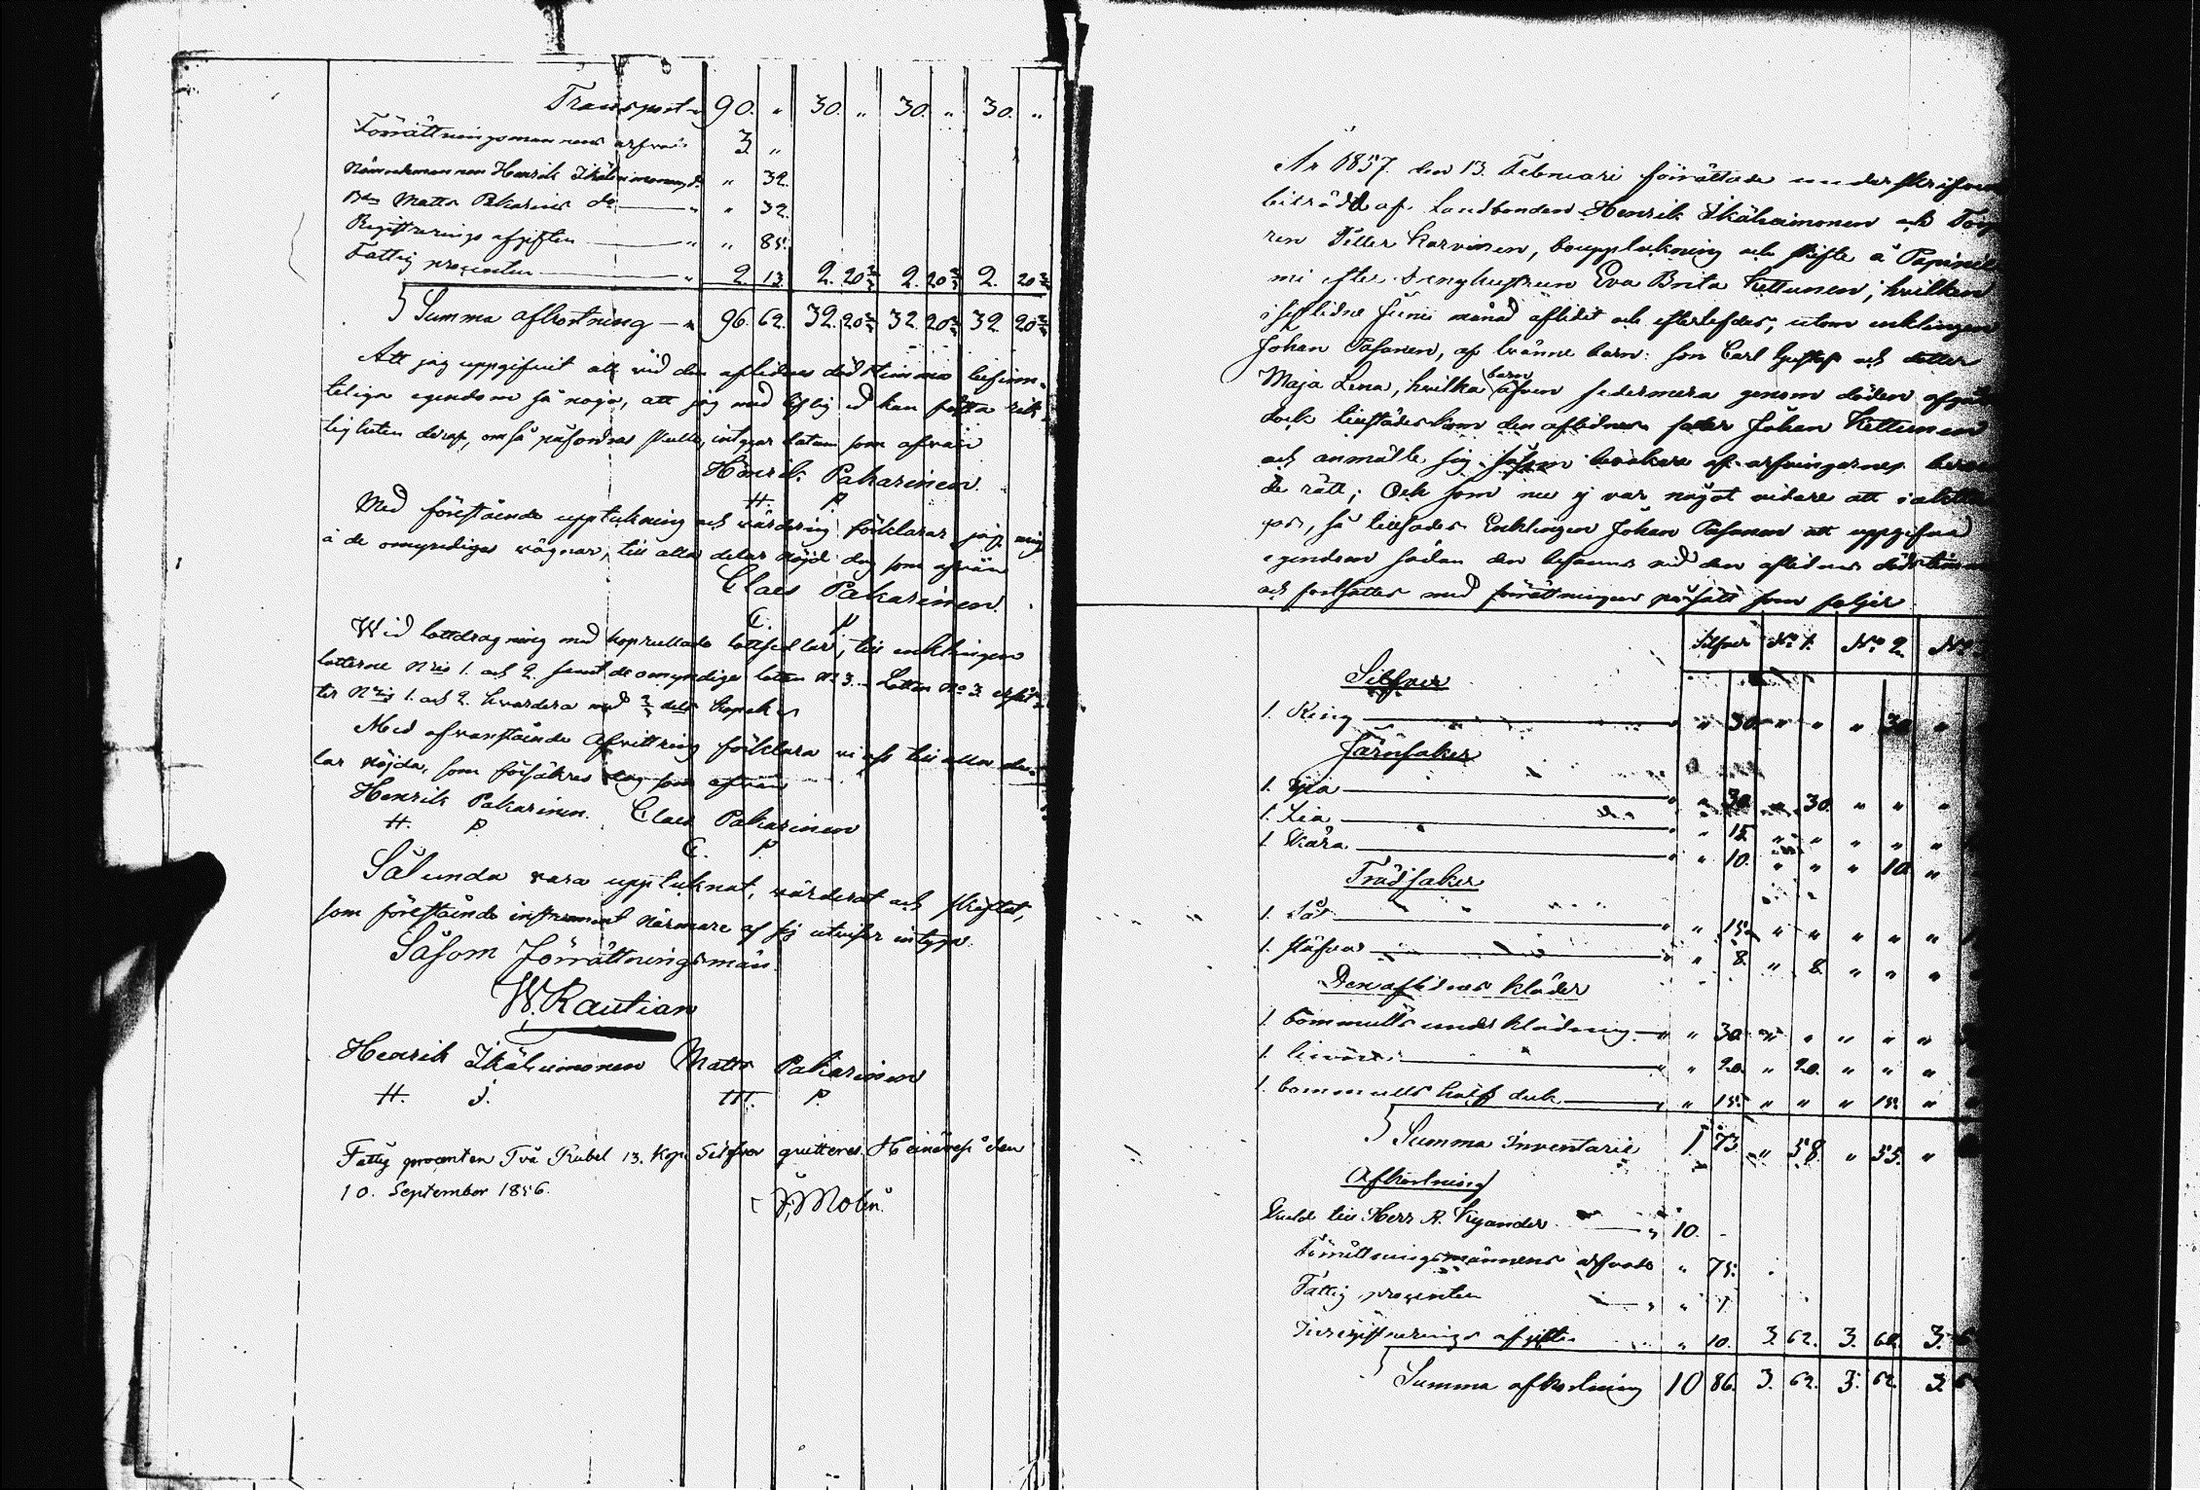 Transport 90. " 30. " 30. " 30. "
Förrättningsmannens arfvode 3. "
Nämndemannen Henrik Ikäheimonen do " 32.
Matts Pakarinen do " 32.
Registrerings afgiften " 85.
Fattig procenten 2. 13. 2. 20 2/3 2. 20 2/3 2. 20 2/3
Summa afkortning 96. 62. 32. 20 2/3 32. 20 2/3 32. 20 2/3
Att jag uppgifvit all vid den aflidnes dödstimma befint-
teliga egendom så noga, att jag med liflig ed kan fästa rik-
tigheten deraf, om så påfordras skulle, intygar datum som ofvan
Henrik Pakarinen.
H. P.
Med förestående uppteckning och värdering förklarar jag mig
å de omyndigas vägnar, till alla delar nöjd dag som ofvan
Claes Pakarinen.
C. P.
Wid lottdragning med hoprullade lottsedlar, till enklingen
lotterne Nris 1. och 2. samt de omyndiga lotten No 3. Lotten No 3
ter Nris 1. och 2. hvardera med 2/3 dels kopek
Med ofvanstående afvittring förklara vi oss till alla de-
lar nöjda, som försäkras dag som ofvan
Henrik Pakarinen. Claes Pakarinen
H. P. C. P.
Sålunda vara upptecknat, värderat och skiftat,
som förestående instrument närmare af sig utvisar intyga.
Såsom Förrättningsmän.
W. Rautian
Henrik Ikäheimonen Matts Pakarinen
H. I. M. P.
Fattig procenten Två Rubel 13. kop. Silfver qvitteras Heinävesi den
10. September 1856.
År 1857. den 13. Februari förrättade undertecknad
biträdd af Landbonden Henrik Ikäheimonen och
Petter Karvinen, bouppteckning och skifte å
mi efter Drenghustrun Eva Brita Kettunen, hvilken
i sistlidne Junii månad aflidit och efterlefdes, utom enklingen
Johan Pasanen, af tvänne barn: son Carl Gustaf och dotter
Maja Lena, hvilka barn äfven sedermera genom döden
dock tillstädeskom den aflidnes fader Johan Kettunen
och anmälte sig såsom bevakare af arfvingarnes
de rätt; Och som nu ej var något vidare att
gas, så tillsades Enklingen Johan Pasanen att uppgifva
egendom sådan den befanns vid den aflidnes dödstimma
och fortsattes med förrättningen på sätt som följer
Silfver No 1. No 2. No
Silfver
1. Ring " 30. " " " 30. "
Järnsaker
1. Yxa " 30. " 30. " " "
1. Lia " 15. " " " " "
1 Skära " 10. " " " 10. "
Trädsaker
1. Så " 15. " " " " "
1. " 8. " 8. " " "
Den aflidnes kläder
1. bommulls underklädning " 30. " " " " "
1. " 20. " 20. " " "
1. bommulls half duk " 15. " " " 15. "
Summa Inventarie 1 73. " 58. " 55. "
Afkortning
Skuld till Herr R. Kyander 10. -
Förrättningsmännens arfvode " 75.
Fattig procenten " 1.
afgiften " 10. 3. 62. 3. 62. 3.
Summa afkortning 10 86. 3. 62. 3. 62. 3.